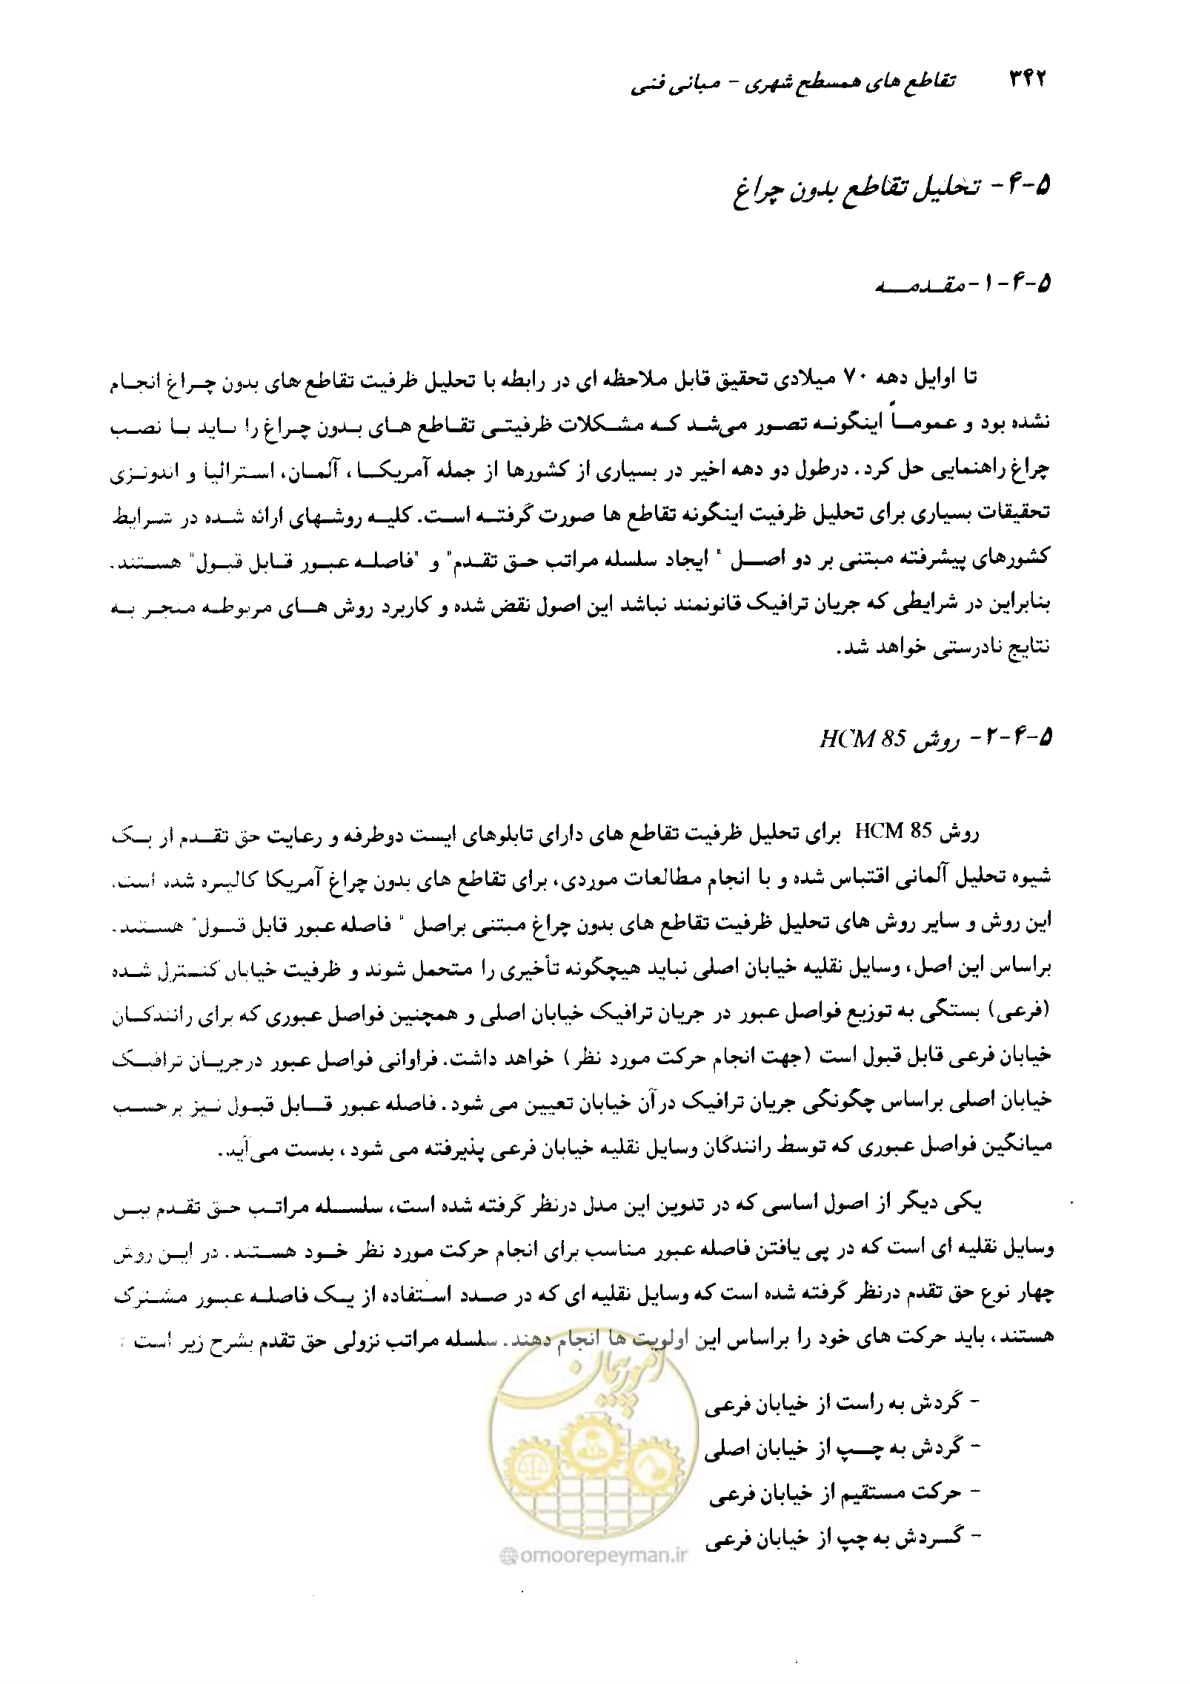 ۳۴۲ تقاطع های همسطح شهری - مبانی فنی
۵-۴- تحلیل تقاطع بدون چراغ
۵-۴-۱- مقدمــه
تا اوایل دهه ۷۰ میلادی تحقیق قابل ملاحظه ای در رابطه با تحلیل ظرفیت تقاطع های بدون چراغ انجام
نشده بود و عموماً اینگونه تصور می‌شد که مشکلات ظرفیتی تقاطع های بدون چراغ را باید با نصب
چراغ راهنمایی حل کرد. درطول دو دهه اخیر در بسیاری از کشورها از جمله آمریکا ، آلمان، استرالیا و اندونزی
تحقیقات بسیاری برای تحلیل ظرفیت اینگونه تقاطع ها صورت گرفته است. کلیه روشهای ارائه شده در شرایط
کشورهای پیشرفته مبتنی بر دو اصل " ایجاد سلسله مراتب حق تقدم" و "فاصله عبور قابل قبول" هستند.
بنابراین در شرایطی که جریان ترافیک قانونمند نباشد این اصول نقض شده و کاربرد روش های مربوطه منجر به
نتایج نادرستی خواهد شد.
۵-۴-۲- روش HCM 85
روش HCM 85 برای تحلیل ظرفیت تقاطع های دارای تابلوهای ایست دوطرفه و رعایت حق تقدم از یک
شیوه تحلیل آلمانی اقتباس شده و با انجام مطالعات موردی، برای تقاطع های بدون چراغ آمریکا کالیبره شده است.
این روش و سایر روش های تحلیل ظرفیت تقاطع های بدون چراغ مبتنی براصل " فاصله عبور قابل قبول" هستند.
براساس این اصل، وسایل نقلیه خیابان اصلی نباید هیچگونه تأخیری را متحمل شوند و ظرفیت خیابان کنترل شده
(فرعی) بستگی به توزیع فواصل عبور در جریان ترافیک خیابان اصلی و همچنین فواصل عبوری که برای رانندگان
خیابان فرعی قابل قبول است (جهت انجام حرکت مورد نظر) خواهد داشت. فراوانی فواصل عبور درجریان ترافیک
خیابان اصلی براساس چگونگی جریان ترافیک درآن خیابان تعیین می شود. فاصله عبور قابل قبول نیز برحسب
میانگین فواصل عبوری که توسط رانندگان وسایل نقلیه خیابان فرعی پذیرفته می شود ، بدست می‌آید.
یکی دیگر از اصول اساسی که در تدوین این مدل درنظر گرفته شده است، سلسله مراتب حق تقدم بین
وسایل نقلیه ای است که در پی یافتن فاصله عبور مناسب برای انجام حرکت مورد نظر خود هستند. در این روش
چهار نوع حق تقدم درنظر گرفته شده است که وسایل نقلیه ای که در صدد استفاده از یک فاصله عبور مشترک
هستند، باید حرکت های خود را براساس این اولویت ها انجام دهند. سلسله مراتب نزولی حق تقدم بشرح زیر است :
- گردش به راست از خیابان فرعی
- گردش به چپ از خیابان اصلی
- حرکت مستقیم از خیابان فرعی
- گردش به چپ از خیابان فرعی
امور پیمان
@omoorepeyman.ir